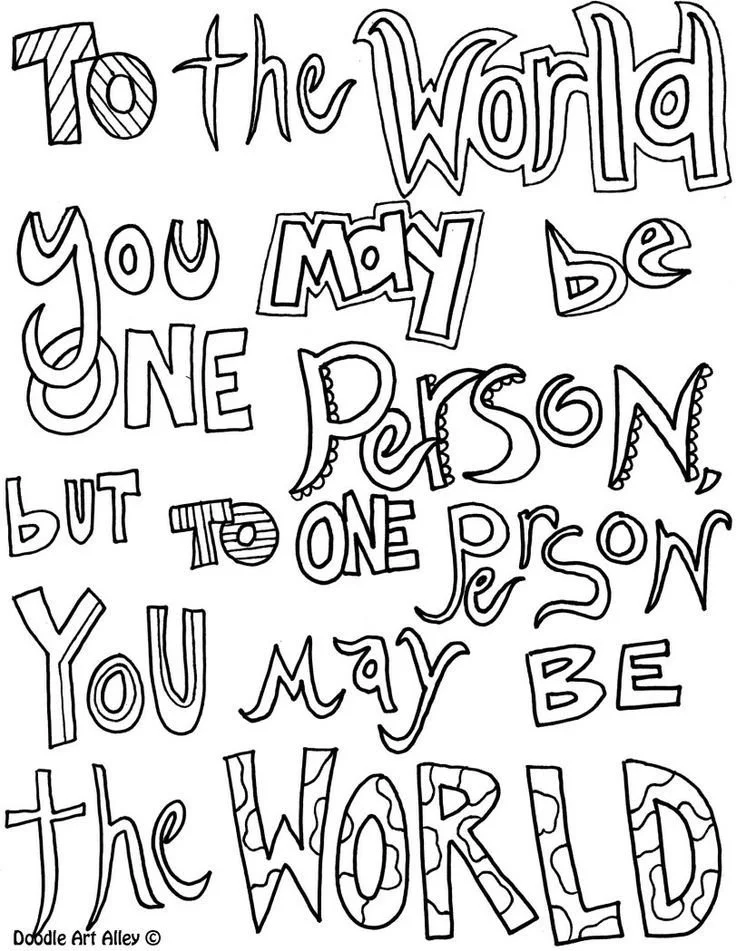 To the World
you may be
ONE Person,
but to ONE Person
You may BE
the WORLD
Doodle Art Alley ©